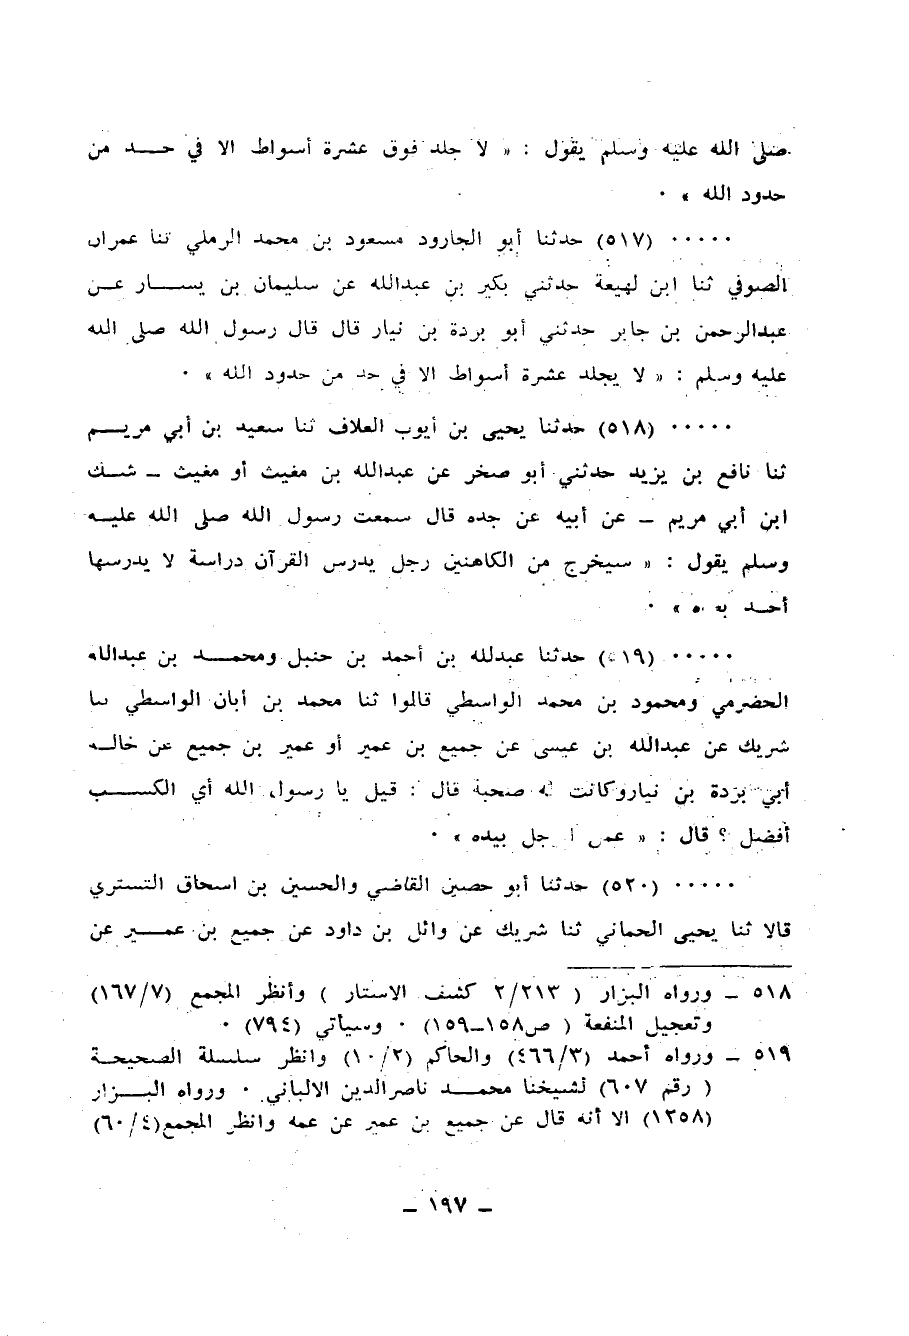 صلى الله عليه وسلم يقول : « لا جلد فوق عشرة أسواط الا في حد من
حدود الله » ٠
٠٠٠٠٠ (٥١٧) حدثنا أبو الجارود مسعود بن محمد الرملي ثنا عمران
الصوفي ثنا ابن لهيعة حدثني بكير بن عبدالله عن سليمان بن يسار عن
عبدالرحمن بن جابر حدثني أبو بردة بن نيار قال قال رسول الله صلى الله
عليه وسلم : « لا يجلد عشرة أسواط الا في حد من حدود الله » ٠
٠٠٠٠٠ (٥١٨) حدثنا يحيى بن أيوب العلاف ثنا سعيد بن أبي مريم
ثنا نافع بن يزيد حدثني أبو صخر عن عبدالله بن مغيث أو مغيث ـ شك
ابن أبي مريم ـ عن أبيه عن جده قال سمعت رسول الله صلى الله عليه
وسلم يقول : « سيخرج من الكاهنين رجل يدرس القرآن دراسة لا يدرسها
أحد » ٠
٠٠٠٠٠ (٥١٩) حدثنا عبدلله بن أحمد بن حنبل ومحمد بن عبدالله
الحضرمي ومحمود بن محمد الواسطي قالوا ثنا محمد بن أبان الواسطي ثنا
شريك عن عبدالله بن عيسى عن جميع بن عمير أو عمير بن جميع عن خاله
أبي بردة بن نيار وكانت له صحبة قال : قيل يا رسول الله أي الكسب
أفضل ؟ قال : « عمل الرجل بيده » ٠
٠٠٠٠٠ (٥٢٠) حدثنا أبو حصين القاضي والحسين بن اسحاق التستري
قالا ثنا يحيى الحماني ثنا شريك عن وائل بن داود عن جميع بن عمير عن
٥١٨ ـ ورواه البزار ( ٢/٢١٣ كشف الاستار ) وأنظر المجمع (١٦٧/٧)
وتعجيل المنفعة ( ص١٥٨ـ١٥٩) ٠ وسيأتي (٧٩٤) ٠
٥١٩ ـ ورواه أحمد (٤٦٦/٣) والحاكم (١٠/٢) وانظر سلسلة الصحيحة
( رقم ٦٠٧) لشيخنا محمد ناصرالدين الالباني ٠ ورواه البزار
(١٢٥٨) الا أنه قال عن جميع بن عمير عن عمه وانظر المجمع(٦٠/٤)
ـ ١٩٧ ـ